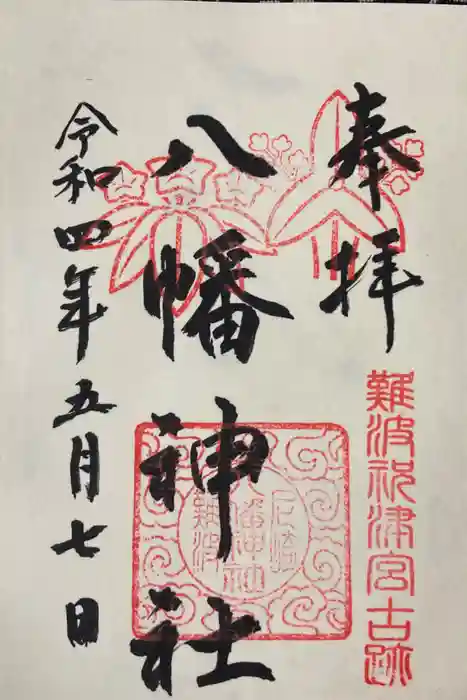 奉拝
難波祝津宮古跡
八幡神社
尼崎
八幡神社
難波
令和四年五月七日